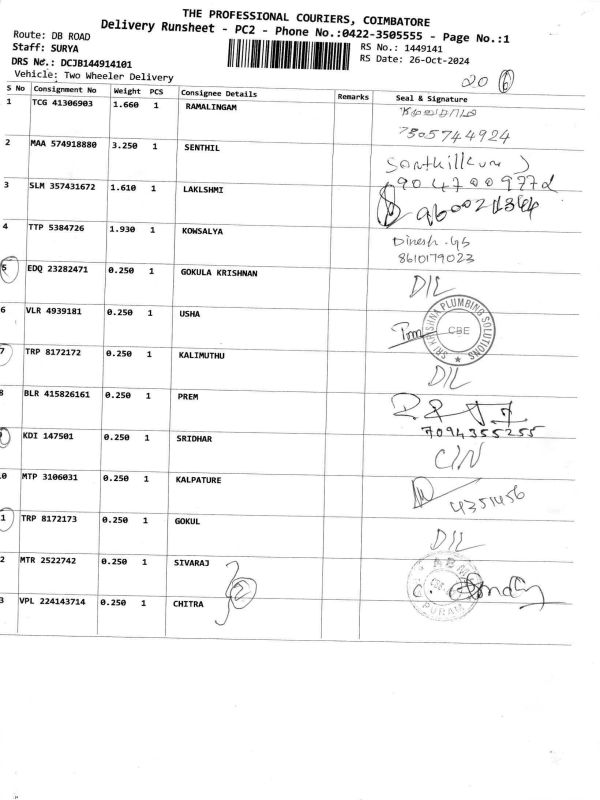 THE PROFESSIONAL COURIERS, COIMBATORE
Delivery Runsheet - PC2 - Phone No.:0422-3505555 - Page No.:1
Route: DB ROAD
RS No.: 1449141
Staff: SURYA
RS Date: 26-Oct-2024
DRS No.: DCJB144914101
Vehicle: Two Wheeler Delivery
20 6
S No Consignment No Weight PCS Consignee Details Remarks Seal & Signature
1 TCG 41306903 1.660 1 RAMALINGAM
7305744924
2 MAA 574918880 3.250 1 SENTHIL
Senthilkum
3 SLM 357431672 1.610 1 LAKLSHMI
4 TTP 5384726 1.930 1 KOWSALYA
Dinesh
8610179023
5 EDQ 23282471 0.250 1 GOKULA KRISHNAN D/L
6 VLR 4939181 0.250 1 USHA
SRI KRISHNA PLUMBING SOLUTIONS
CBE
7 TRP 8172172 0.250 1 KALIMUTHU D/L
8 BLR 415826161 0.250 1 PREM
7094355255
9 KDI 147501 0.250 1 SRIDHAR C/N
0 MTP 3106031 0.250 1 KALPATURE
4351456
1 TRP 8172173 0.250 1 GOKUL D/L
2 MTR 2522742 0.250 1 SIVARAJ
2
PURAM
3 VPL 224143714 0.250 1 CHITRA